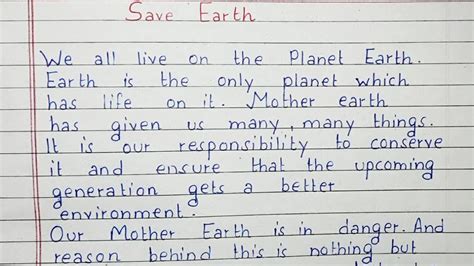 Save Earth
We all live on the Planet Earth.
Earth is the only planet which
has life on it. Mother earth
has given us many, many things.
It is our responsibility to conserve
it and ensure that the upcoming
generation gets a better
environment.
Our Mother Earth is in danger. And
reason behind this is nothing but